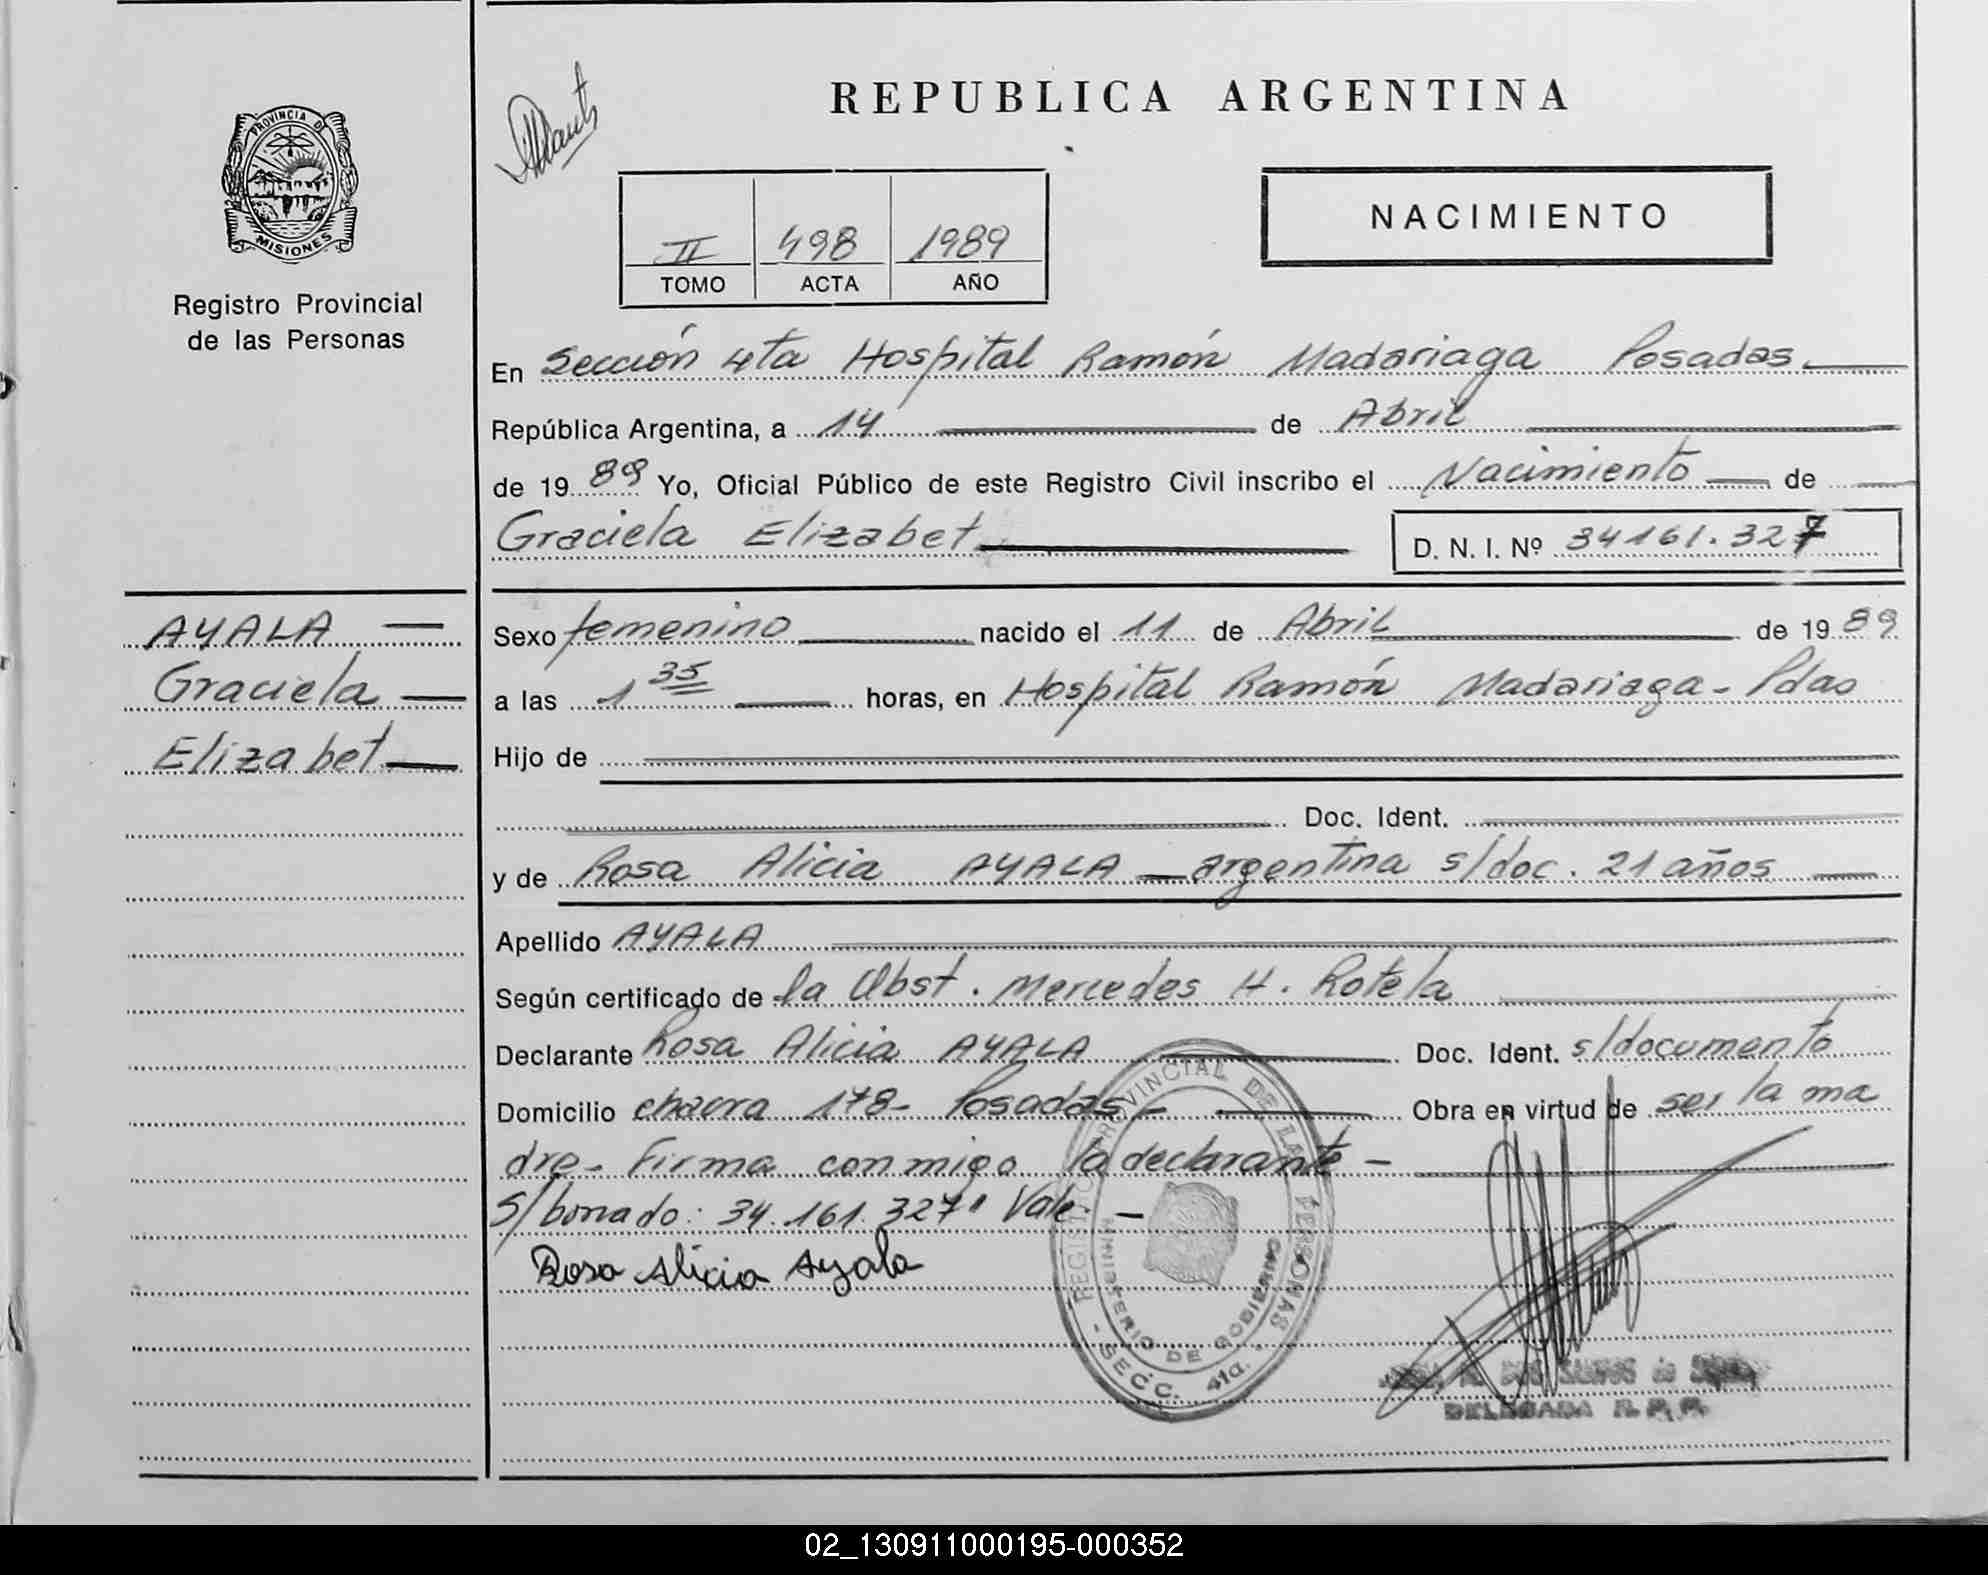 PROVINCIA D
MISIONES
Registro Provincial
de las Personas
REPUBLICA ARGENTINA
II 498 1989
TOMO ACTA AÑO
NACIMIENTO
En Sección 4ta Hospital Ramón Madariaga Posadas
República Argentina, a 14 de Abril
de 1989 Yo, Oficial Público de este Registro Civil inscribo el Nacimiento de
Graciela Elizabet D. N. I. Nº 34161.327
AYALA
Graciela
Elizabet
Sexo femenino nacido el 11 de Abril de 1989
a las 1 35 horas, en Hospital Ramón Madariaga - Pdas
Hijo de
Doc. Ident.
y de Rosa Alicia AYALA argentina s/doc. 21 años
Apellido AYALA
Según certificado de la Obst. Mercedes H. Rotela
Declarante Rosa Alicia AYALA Doc. Ident. s/documento
Domicilio chacra 178- Posadas- Obra en virtud de ser la ma
dre- Firma conmigo la declarante-
S/borrado: 34.161.327" Vale. -
Rosa Alicia Ayala
REGISTRO PROVINCIAL DE LAS PERSONAS
MINISTERIO DE GOBIERNO
- SECC. 4ta. -
DOS SANTOS de
DELEGADA R. P. P.
02_130911000195-000352